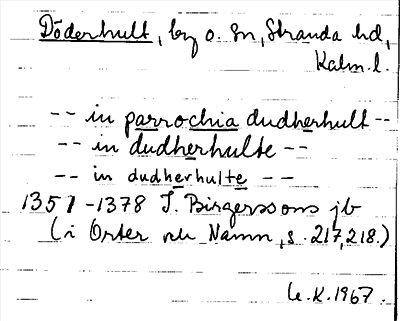 Döderhult, by o. sn, Stranda hd,
Kalm. l.
-- in parrochia dudherhult --
-- in dudherhulte --
-- in dudherhulte --
1351-1378 J. Birgerssons jb
(i Orter och Namn, s. 217, 218.)
K. 1967.